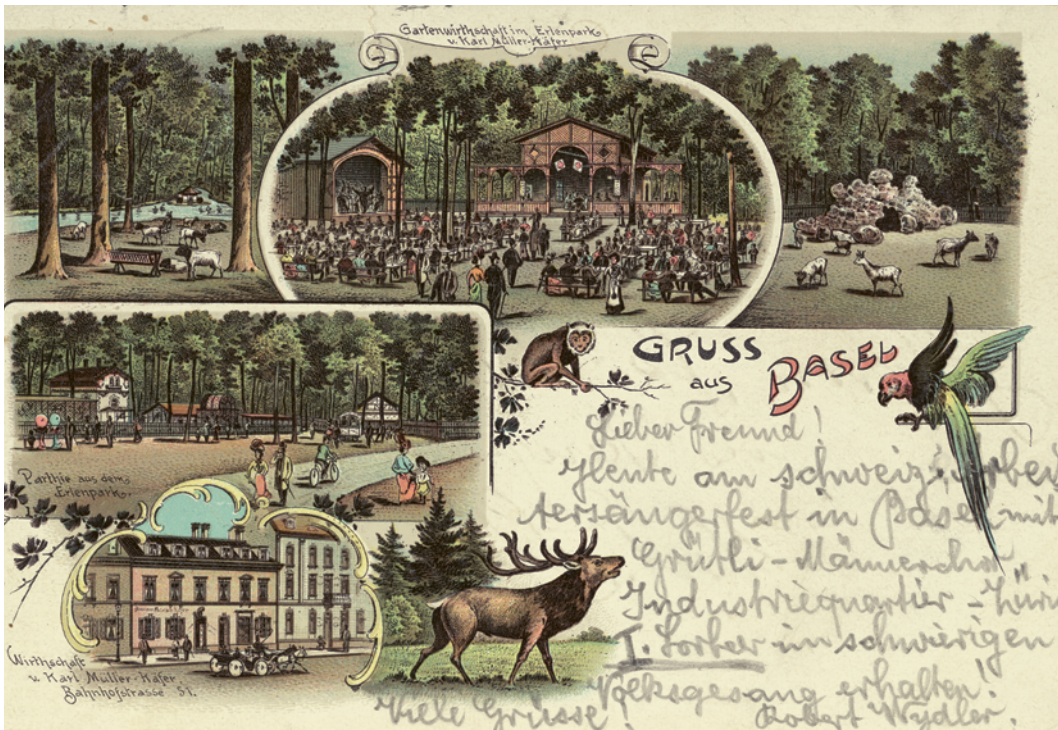 Gartenwirthschaft im Erlenpark
v. Karl Müller-Käfer
GRUSS
aus
BASEL
Parthie aus dem
Erlenpark.
Wirthschaft
v. Karl Müller-Käfer
Bahnhofstrasse 51.
Lieber Freund!
Heute am schweiz. Arbei
tersängerfest in Basel mit
Grütli-Männerchor
Industriequartier-Züri
I. Lorber im schwierigen
Volksgesang erhalten!
Viele Grüsse! Robert Wydler.